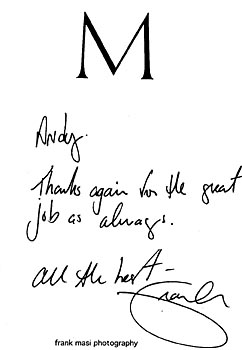 M
Andy.
Thanks again for the great
job as always.
all the best –
Frank
frank masi photography